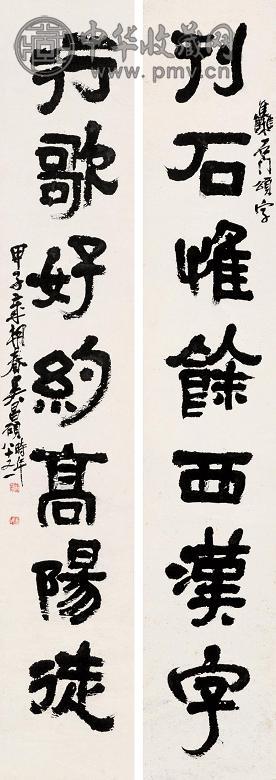 中华收藏网
www.pmv.cn
集石門頌字
刊石惟餘西漢字
行歌好約髙陽徒
甲子春吳昌碩時年
八十又一